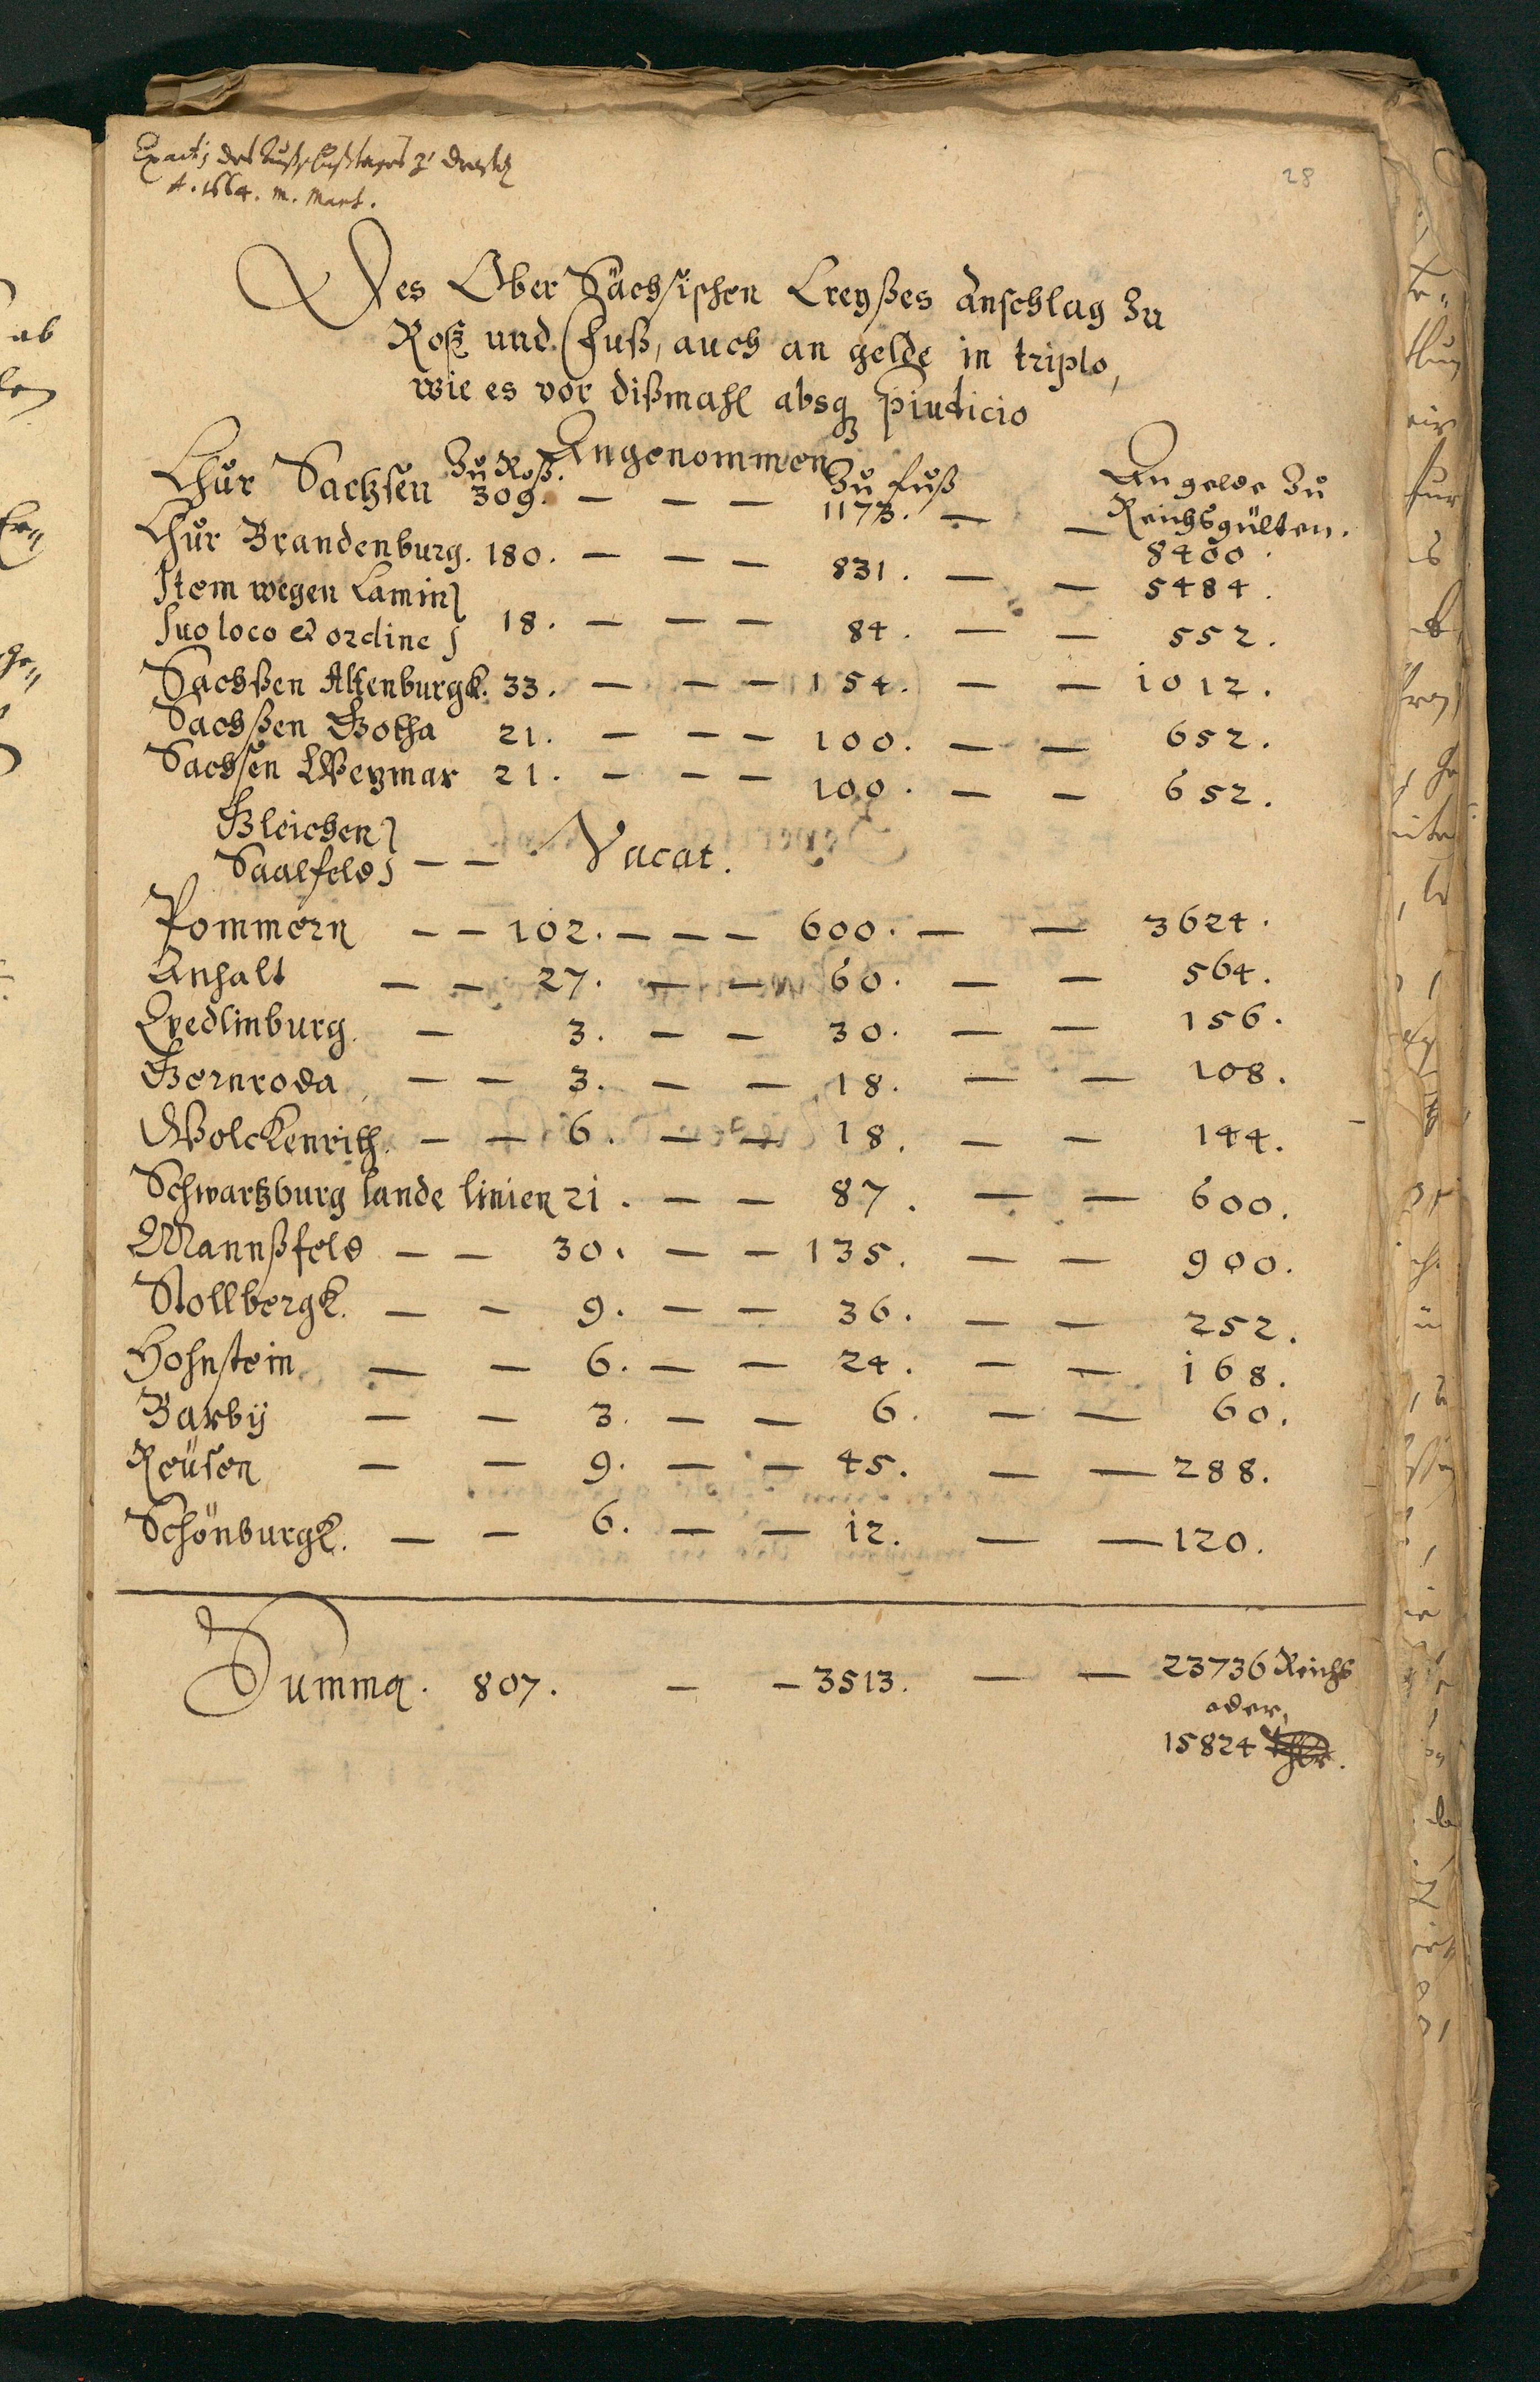 A. 1664. m. Mart.
28
Des Ober Sächsischen Creyßes Anschlag Zu
Roß und fuß, auch an gelde in triplo,
wie es vor dißmahl absq; Piudicio
Angenommen
Zu Roß. Zu fuß An gelde Zu
Reichsgülten.
Chur Sachsen 309. — — — 1173. — — 8400.
Chur Brandenburg. 180. — — — 831. — — 5484.
Item wegen Camin
suo loco et ordine 18. — — — 84. — — 552.
Sachßen Altenburgk. 33. — — — 154. — — 1012.
Sachßen Gotha 21. — — — 100. — — 652.
Sachsen Weymar 21. — — — 100. — — 652.
Gleichen
Saalfeld — — Vacat.
Pommern — — 102. — — — 600. — — 3624.
Anhalt — — 27. — — 60. — — 564.
Qvedlinburg. — 3. — — 30. — — 156.
Gernroda — — 3. — — 18. — — 108.
Wolckenrith. — — 6. — — 18. — — 144.
Schwartzburg lande linien 21. — — 87. — — 600.
Mannßfeld — — 30. — — 135. — — 900.
Stollbergk. — — 9. — — 36. — — 252.
Hohnstein — — 6. — — 24. — — 168.
Barbÿ — — 3. — — 6. — — 60.
Reüsen — — 9. — — 45. — — 288.
Schönburgk. — — 6. — — 12. — — 120.
Summa. 807. — — 3513. — — 23736 Reichs
oder,
15824 Thlr.